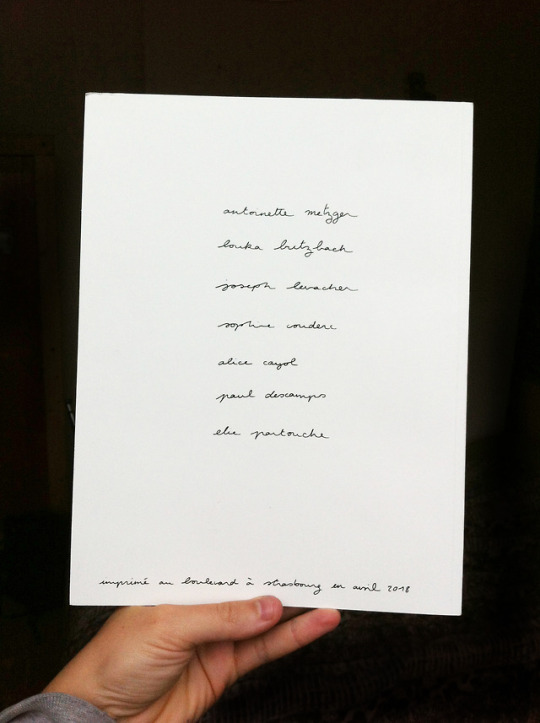 antoinette metzger
louka butzbach
joseph levacher
sophie couderc
alice cayol
paul descamps
elie partouche
imprimé au boulevard à strasbourg en avril 2018